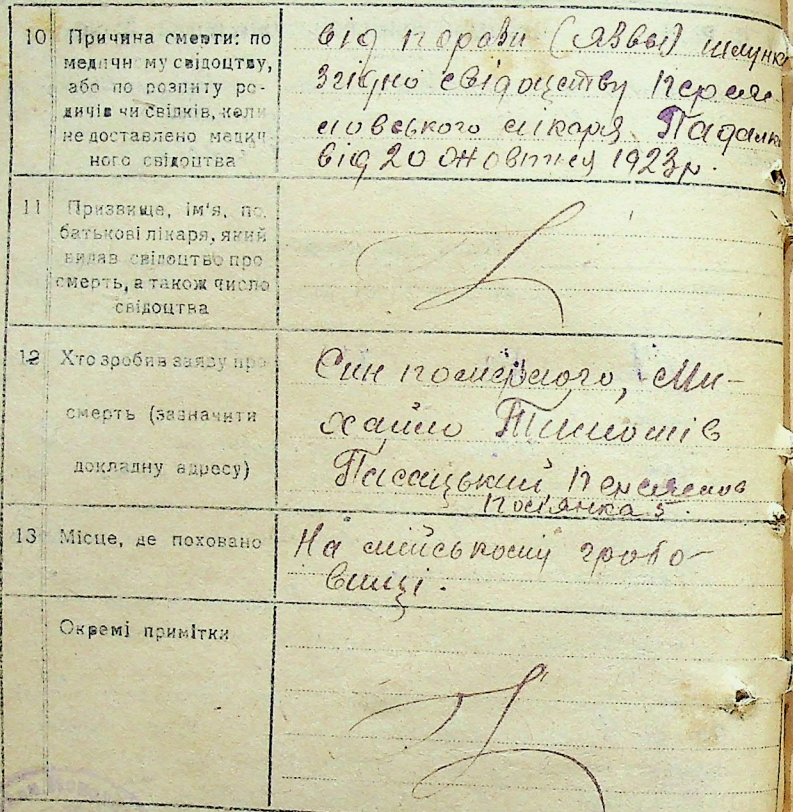 10 Причина смерти: по
медичн му свідоцтву,
або по розпиту ро-
дичів чи свідків, коли
не доставлено медич
ного свідоцтва
від порави (язвы) шлунка
згідно свідоцтву Переяс
ловського лікаря Падалки
від 20 жовтня 1923 р.
11 Призвище, ім'я, по
батькові лікаря, який
видав свідоцтво про
смерть, а також число
свідоцтва
12 Хто зробив заяву про
смерть (зазначити
докладну адресу)
Син помершого, Ми-
хайло
Переяслов
13 Місце, де поховано
На міському гробо-
вищі.
Окремі примітки